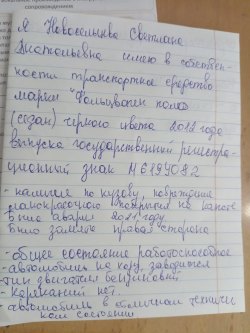 сопровождением
Я Новосельцева Светлана
Анатольевна имею в собствен-
ность транспортное средство
марки "Фольцваген поло"
(седан) чёрного цвета 2012 года
выпуска государственный регистра-
ционный знак М619УО82
- наличие по кузову, повреждения
лакокрасочного покрытия на капоте
была авария 2021 году
было замята правая сторона
- общее состояние работоспособное
- автомобиль на ходу, заводится
тип двигателя бензиновый
нет
- автомобиль в отличном техничес
ком состоянии